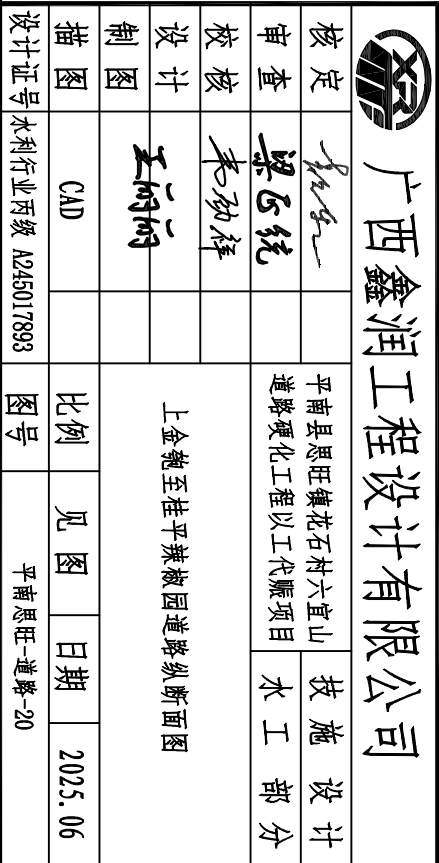 XR
广西鑫润工程设计有限公司
核定
平南县思旺镇花石村六宜山
道路硬化工程以工代赈项目
技施 设计
审查
梁正统
水工 部分
校核
韦劲祥
设计
制图
上金匏至桂平辣椒园道路纵断面图
描图 CAD 比例 见图 日期 2025.06
设计证号 水利行业丙级 A245017893 图号 平南思旺-道路-20